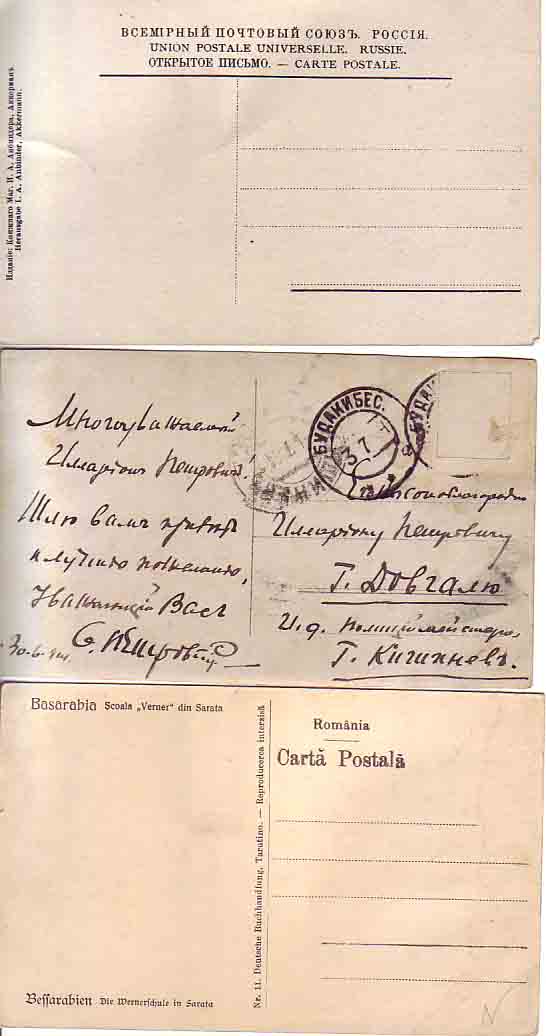 ВСЕМІРНЫЙ ПОЧТОВЫЙ СОЮЗЪ. РОССІЯ.
UNION POSTALE UNIVERSELLE. RUSSIE.
ОТКРЫТОЕ ПИСЬМО. — CARTE POSTALE.
Изданіе: Книжнаго Маг. И. А. Анбиндера, Аккерманъ.
Herausgabe I. A. Anbinder, Akkermann.
Многоуважаемый
Илларіонъ Петровичъ!
Шлю вамъ привѣтъ
и лучшія пожеланія,
Уважающій Васъ
БУДАКИ БЕС.
3 7
БУДАК
Илларіону Петровичу
Г. Довгалю
И. д. полицiймейстера
Г. Кишиневъ.
Basarabia Școala „Verner“ din Sarata
România
Cartă Postală
Nr. 11. Deutsche Buchhandlung, Tarutino. — Reproducerea interzisă
Bessarabien Die Wernerschule in Sarata